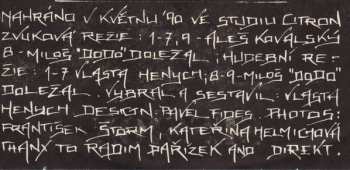 NAHRÁNO V KVĚTNU '90 VE STUDIU CITRON
ZVUKOVÁ REŽIE: 1-7, 9 - ALEŠ KOVALSKÝ
8 - MILOŠ "DODO" DOLEŽAL, HUDEBNÍ RE-
ŽIE: 1-7 VLASTA HENYCH, 8-9-MILOŠ "DODO"
DOLEŽAL. VYBRAL A SESTAVIL: VLASTA
HENYCH DESIGN: PAVEL FIDES. PHOTOS:
FRANTIŠEK ŠTORM, KATEŘINA HELMICHOVÁ
THANX TO RADIM PAŘÍZEK AND DIREKT.